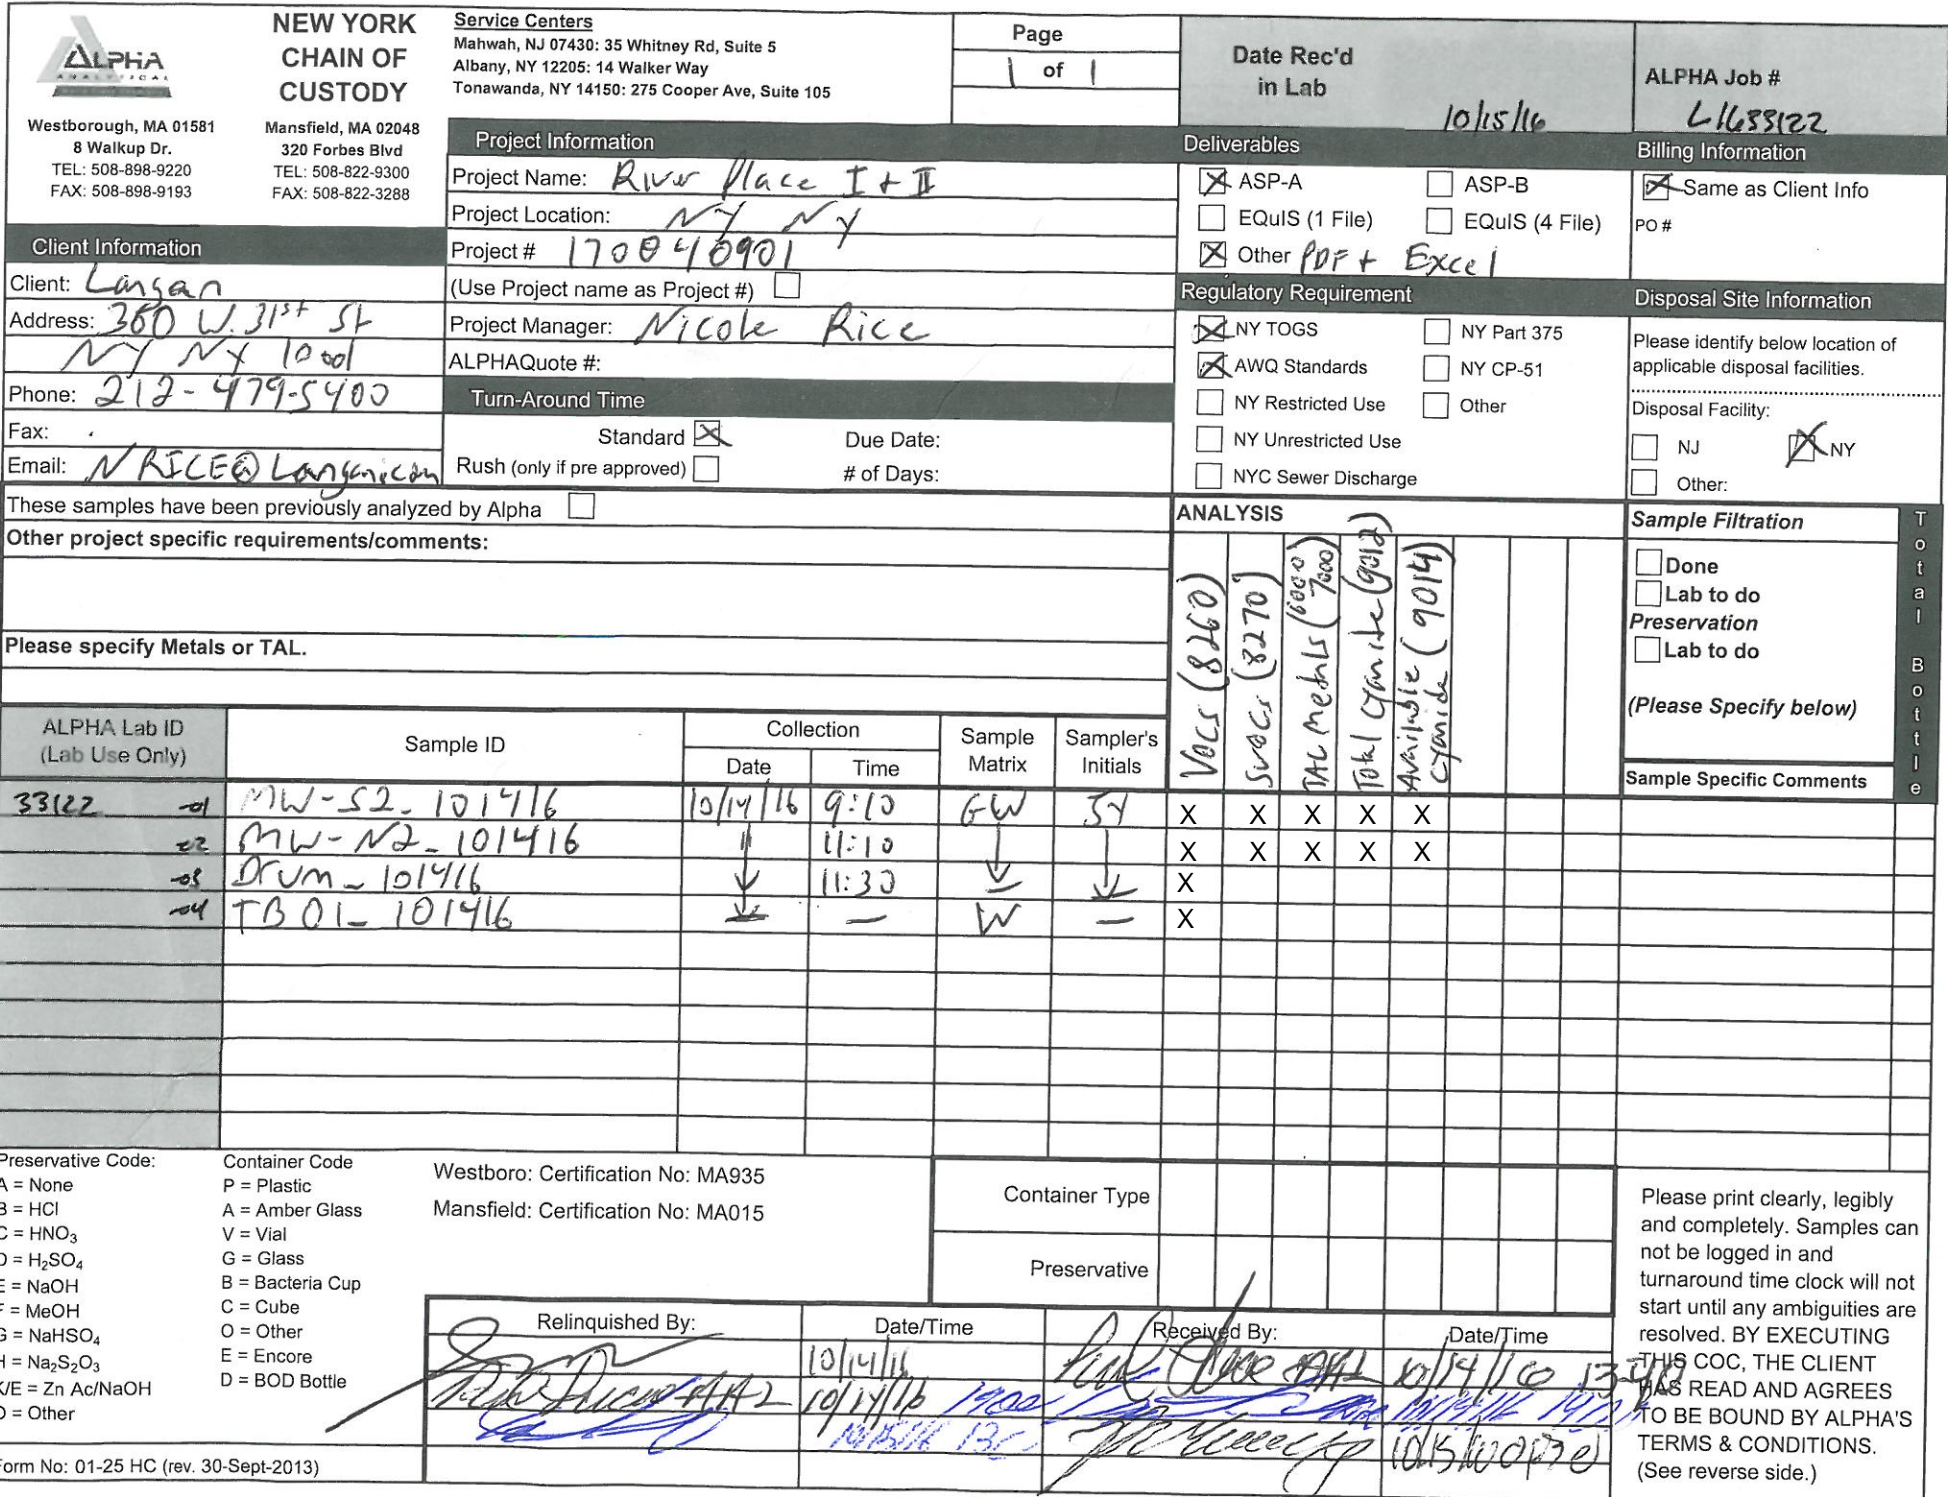 ALPHA
ANALYTICAL
Westborough, MA 01581
8 Walkup Dr.
TEL: 508-898-9220
FAX: 508-898-9193
NEW YORK
CHAIN OF
CUSTODY
Mansfield, MA 02048
320 Forbes Blvd
TEL: 508-822-9300
FAX: 508-822-3288
Service Centers
Mahwah, NJ 07430: 35 Whitney Rd, Suite 5
Albany, NY 12205: 14 Walker Way
Tonawanda, NY 14150: 275 Cooper Ave, Suite 105
Page
1 of 1
Date Rec'd
in Lab
10/15/16
ALPHA Job #
L1633122
Client Information
Client: Langan
Address: 360 W. 31st St
NY NY 10001
Phone: 212-479-5400
Fax:
Email: NRICE@Langan.com
Project Information
Project Name: River Place I + II
Project Location: NY NY
Project # 170040901
(Use Project name as Project #)
Project Manager: Nicole Rice
ALPHAQuote #:
Turn-Around Time
Standard X
Due Date:
Rush (only if pre approved)
# of Days:
Deliverables
X ASP-A
ASP-B
EQuIS (1 File)
EQuIS (4 File)
X Other PDF + Excel
Regulatory Requirement
X NY TOGS
NY Part 375
X AWQ Standards
NY CP-51
NY Restricted Use
Other
NY Unrestricted Use
NYC Sewer Discharge
Billing Information
X Same as Client Info
PO #
Disposal Site Information
Please identify below location of
applicable disposal facilities.
Disposal Facility:
NJ
X NY
Other:
These samples have been previously analyzed by Alpha
Other project specific requirements/comments:
Please specify Metals or TAL.
ANALYSIS
VOCs (8260)
SVOCs (8270)
TAL Metals (6000 7000)
Total Cyanide (9012)
Available Cyanide (9014)
Sample Filtration
Done
Lab to do
Preservation
Lab to do
(Please Specify below)
Sample Specific Comments
Total Bottle
ALPHA Lab ID
(Lab Use Only)
Sample ID
Collection
Date
Time
Sample
Matrix
Sampler's
Initials
33122 -01 MW-S2_101416 10/14/16 9:10 GW SY X X X X X
-02 MW-N2_101416 11:10 X X X X X
-03 Drum_101416 11:30 X
-04 TB01_101416 — W — X
Preservative Code:
A = None
B = HCl
C = HNO3
D = H2SO4
E = NaOH
F = MeOH
G = NaHSO4
H = Na2S2O3
K/E = Zn Ac/NaOH
O = Other
Container Code
P = Plastic
A = Amber Glass
V = Vial
G = Glass
B = Bacteria Cup
C = Cube
O = Other
E = Encore
D = BOD Bottle
Westboro: Certification No: MA935
Mansfield: Certification No: MA015
Container Type
Preservative
Relinquished By:
Date/Time
Received By:
Date/Time
10/14/16
10/14/16
10/14/16 1900
Please print clearly, legibly
and completely. Samples can
not be logged in and
turnaround time clock will not
start until any ambiguities are
resolved. BY EXECUTING
THIS COC, THE CLIENT
HAS READ AND AGREES
TO BE BOUND BY ALPHA'S
TERMS & CONDITIONS.
(See reverse side.)
Form No: 01-25 HC (rev. 30-Sept-2013)